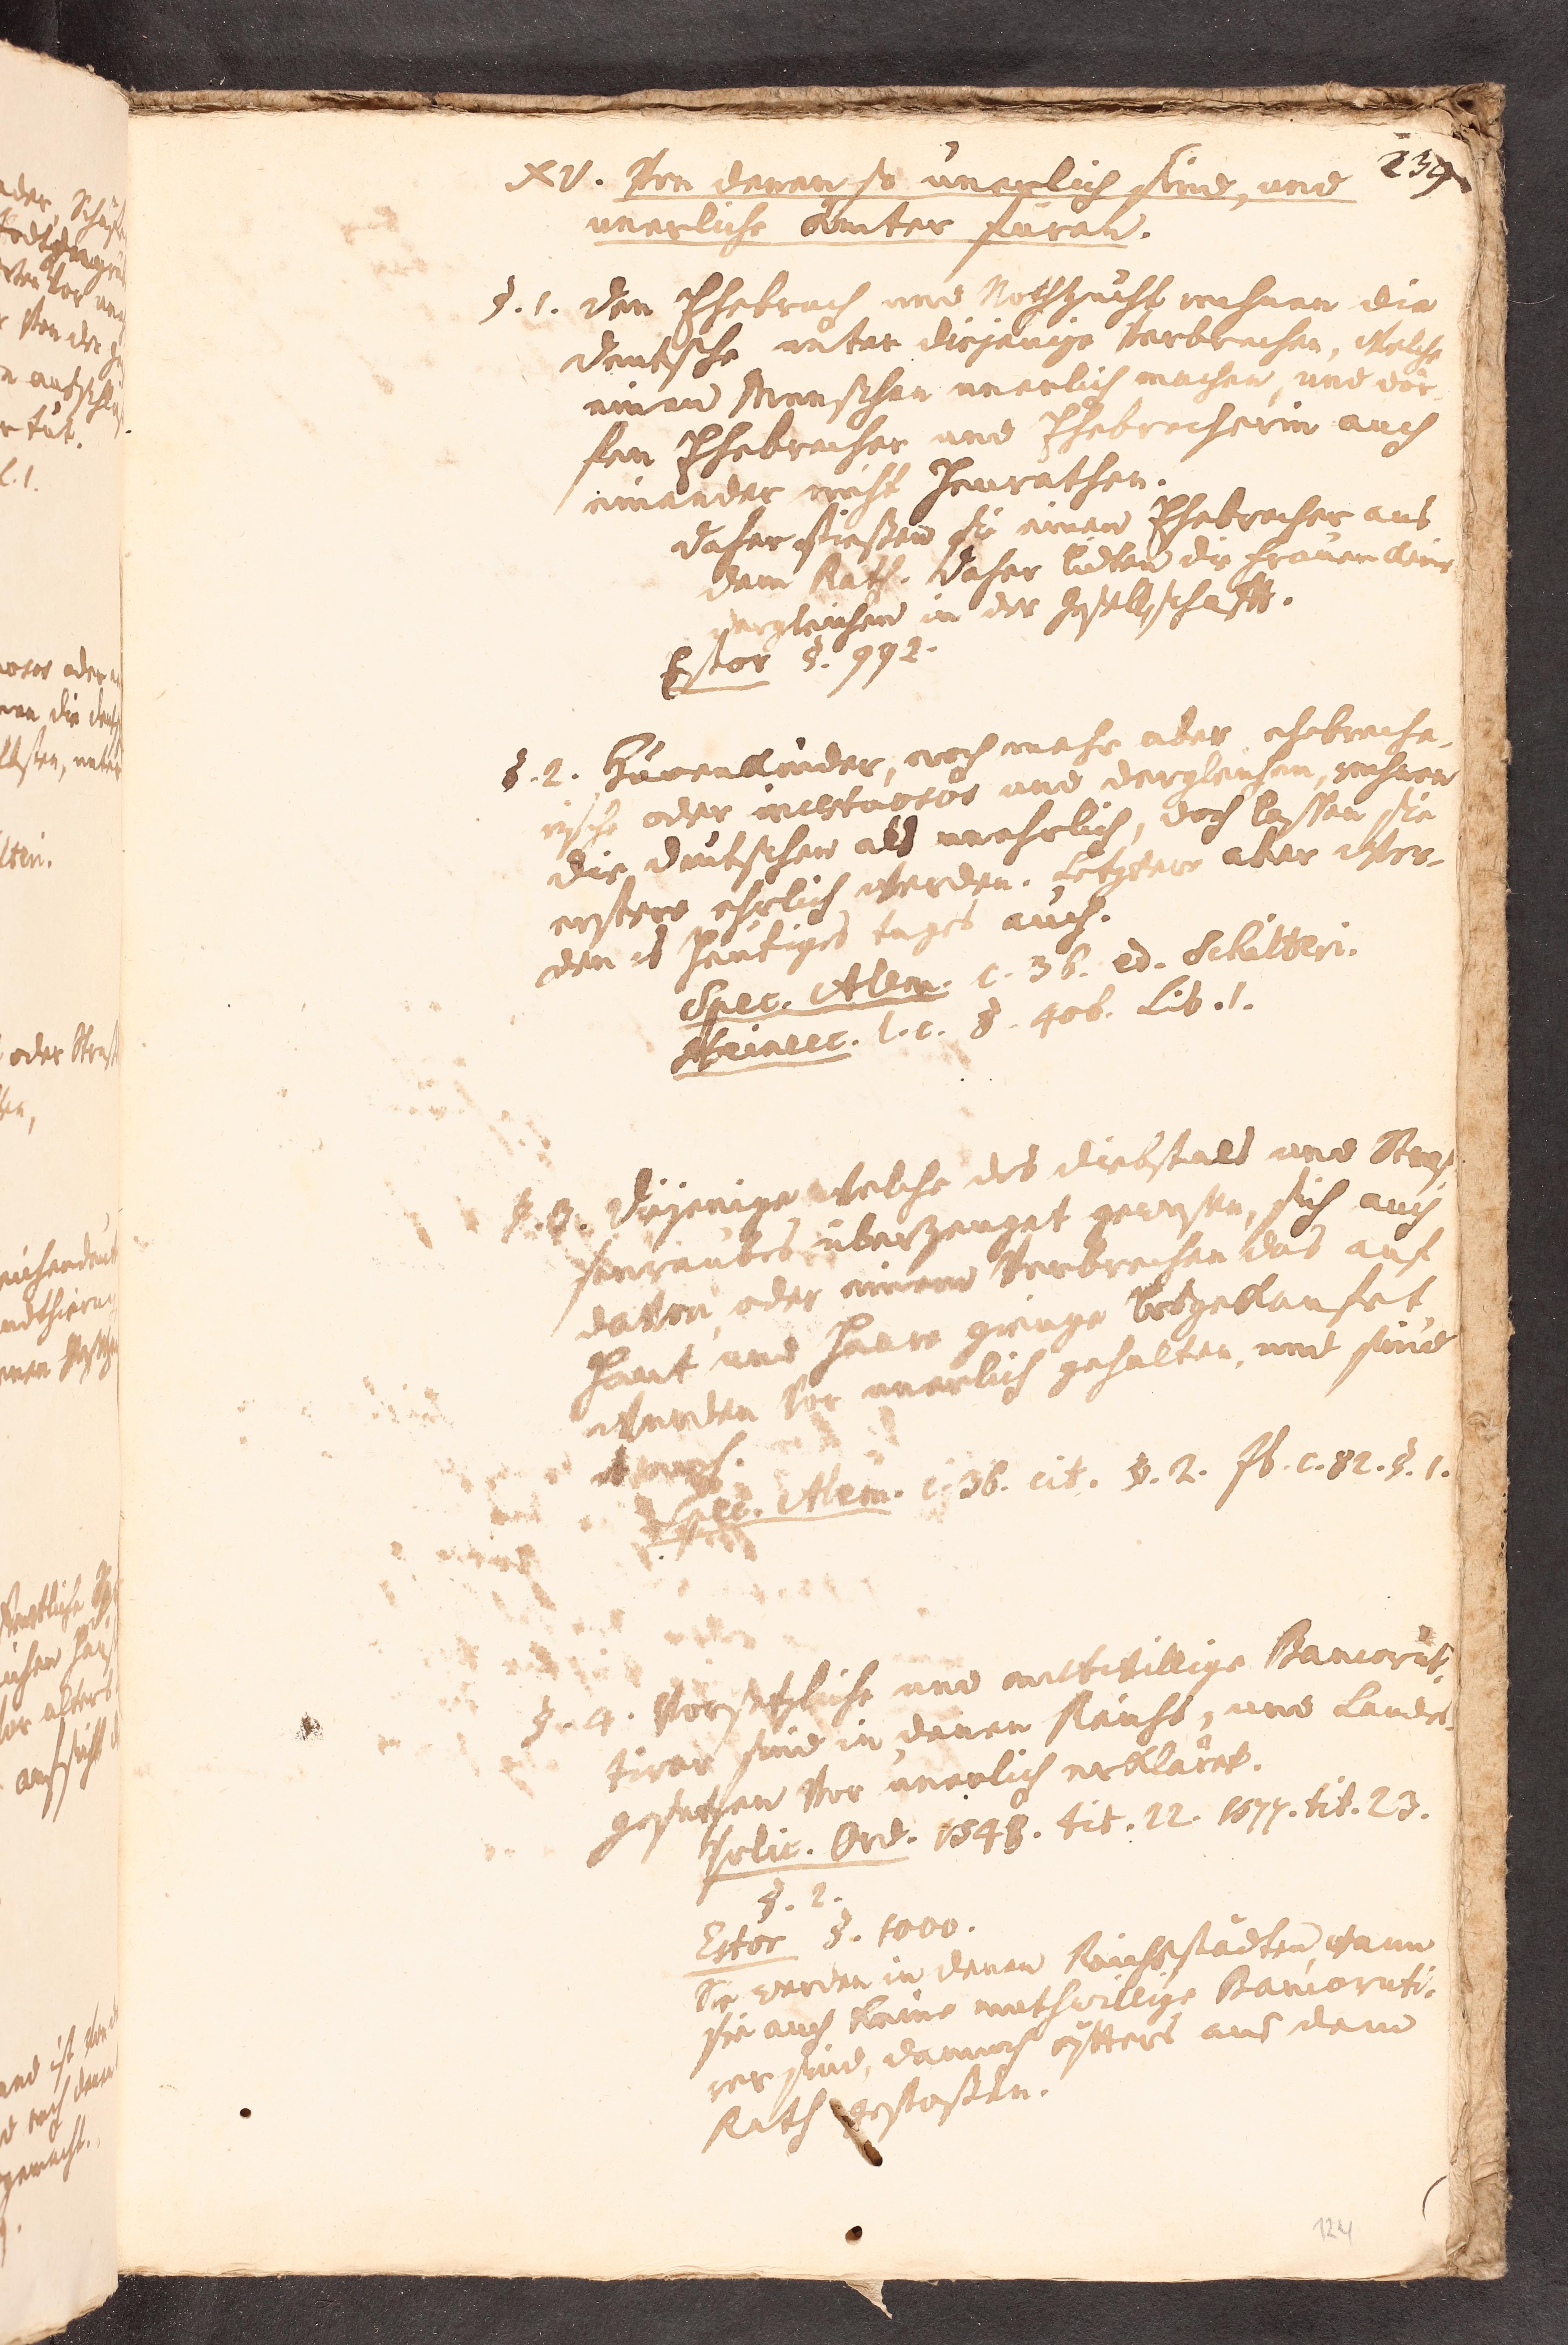 239
XV. Von denen so unerlich sind, und
unerliche ämter füren.
§. 1. Den Ehebruch und Nothzucht rechnen die
deutsche unter diejenige Verbrechen, welche
einen Menschen unerlich machen, und dör-
fen Ehebrecher und Ehebrecherin auch
einander nicht heurathen.
daher stießen sie einen Ehebrecher aus
dem Rath. daher lidten die frauen keine
dergleichen in der Gesellschafft.
Estor §. 992.
§. 2. Hurenkinder, noch mehr aber ehebreche-
rische oder incestuosos und dergleichen, rechnen
die deutschen als unehrlich, doch lassen sie
erstere ehrlich werden. Letztere aber wer-
den es heutiges tages auch.
Spec. Alem. c. 36. ed. Schilteri.
Heinecc. l. c. §. 406. Lib. 1.
§. 3. Diejenige welche des diebstals und Stras-
senraubes überzeuget gewesen, sich auch
davon, oder einem Verbrechen das auf
Haut und Haare gienge losgekaufet,
wurden vor unerlich gehalten, und sind
es noch.
Spec. Alem. c. 36. cit. §. 2. Ib. c. 82. §. 1.
§. 4. Vorsetzliche und mutwillige Bancorut-
tirer sind in denen Reichs, und Landes-
gesetzen vor unerlich erkläret.
Polic. Ord. 1548. tit. 22. 1577. tit. 23.
§. 2.
Estor §. 1000.
Sie werden in denen Reichsstädten, wann
sie auch keine muthwillige Bancoruti-
rer sind, dannoch öffters aus dem
Rath gestoßen.
124